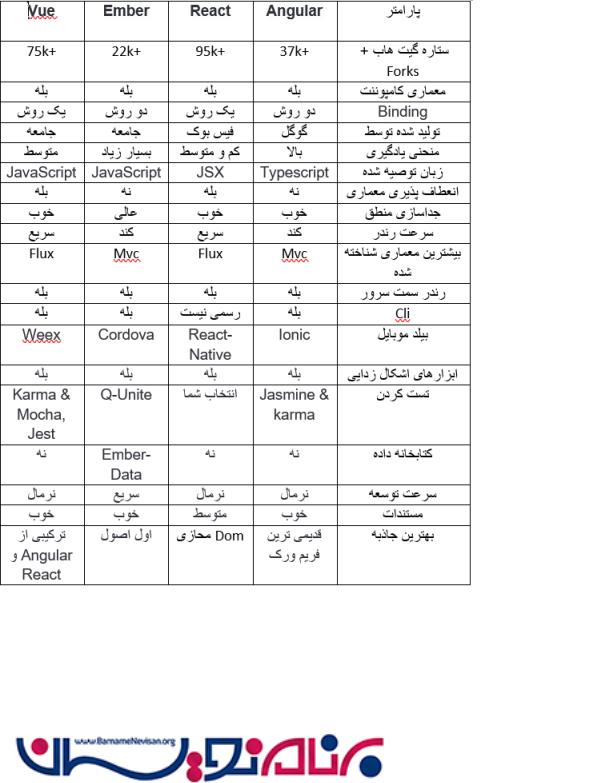 پارامتر Angular React Ember Vue
ستاره گیت هاب + 37k+ 95k+ 22k+ 75k+
Forks
معماری کامپوننت بله بله بله بله
Binding دو روش یک روش دو روش یک روش
تولید شده توسط گوگل فیس بوک جامعه جامعه
منحنی یادگیری بالا کم و متوسط بسیار زیاد متوسط
زبان توصیه شده Typescript JSX JavaScript JavaScript
انعطاف پذیری معماری نه بله نه بله
جداسازی منطق خوب خوب عالی خوب
سرعت رندر کند سریع کند سریع
بیشترین معماری شناخته Mvc Flux Mvc Flux
شده
رندر سمت سرور بله بله بله بله
Cli بله رسمی نیست بله بله
بیلد موبایل Ionic React- Cordova Weex
Native
ابزارهای اشکال زدایی بله بله بله بله
تست کردن Jasmine & انتخاب شما Q-Unite Karma &
karma Mocha,
Jest
کتابخانه داده نه نه Ember- نه
Data
سرعت توسعه نرمال نرمال سریع نرمال
مستندات خوب متوسط خوب خوب
بهترین جاذبه قدیمی ترین Dom محازی اول اصول ترکیبی از
فریم ورک Angular و
React
برنامه نویسان
www.BarnameNevisan.org